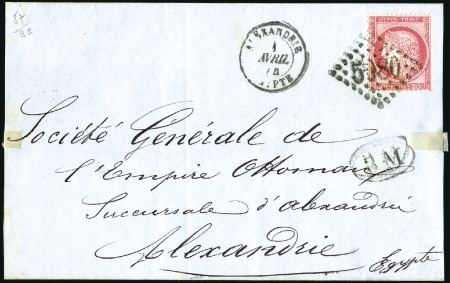 ALEXANDRIE
1
AVRIL
5080
Société Générale de
l'Empire Ottoman
Succursale d'alexandrie
Alexandrie
Egypte